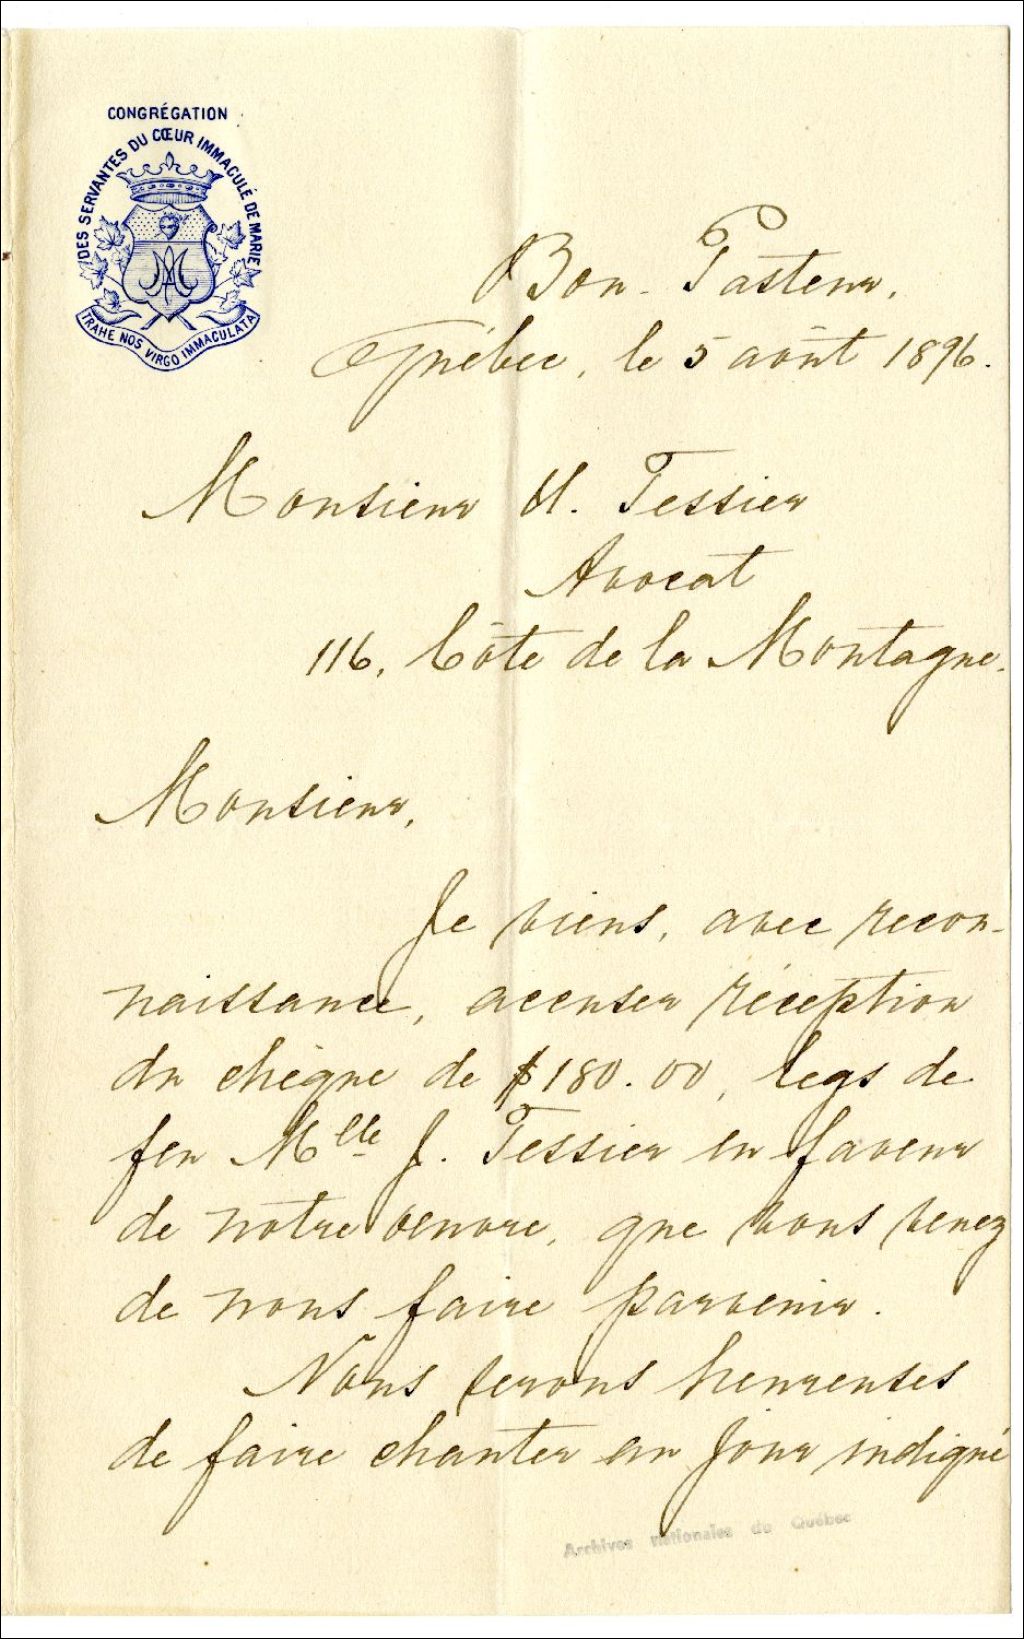 CONGRÉGATION
DES SERVANTES DU CŒUR IMMACULÉ DE MARIE
TRAHE NOS VIRGO IMMACULATA
Bon-Pasteur,
Québec, le 5 août 1896.
Monsieur U. Tessier
Avocat
116, Côte de la Montagne.
Monsieur,
Je viens, avec recon-
naissance, accuser réception
du chèque de $180.00, legs de
feu Mlle J. Tessier en faveur
de notre oeuvre, que vous venez
de nous faire parvenir.
Nous serons heureuses
de faire chanter au jour indiqué
Archives nationales du Québec